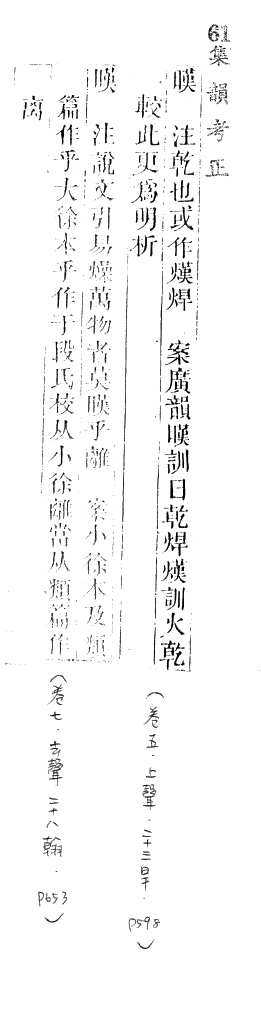 61集韻考正
暵　注乾也或作熯焊　案廣韻暵訓日乾焊熯訓火乾
較此更爲明析
(卷五.上聲.二十三旱.p598)
暵　注說文引易燥萬物者莫暵乎離　案小徐本及類
篇作乎大徐本乎作于段氏校从小徐離當从類篇作
离
(卷七.去聲二十八翰.p653)